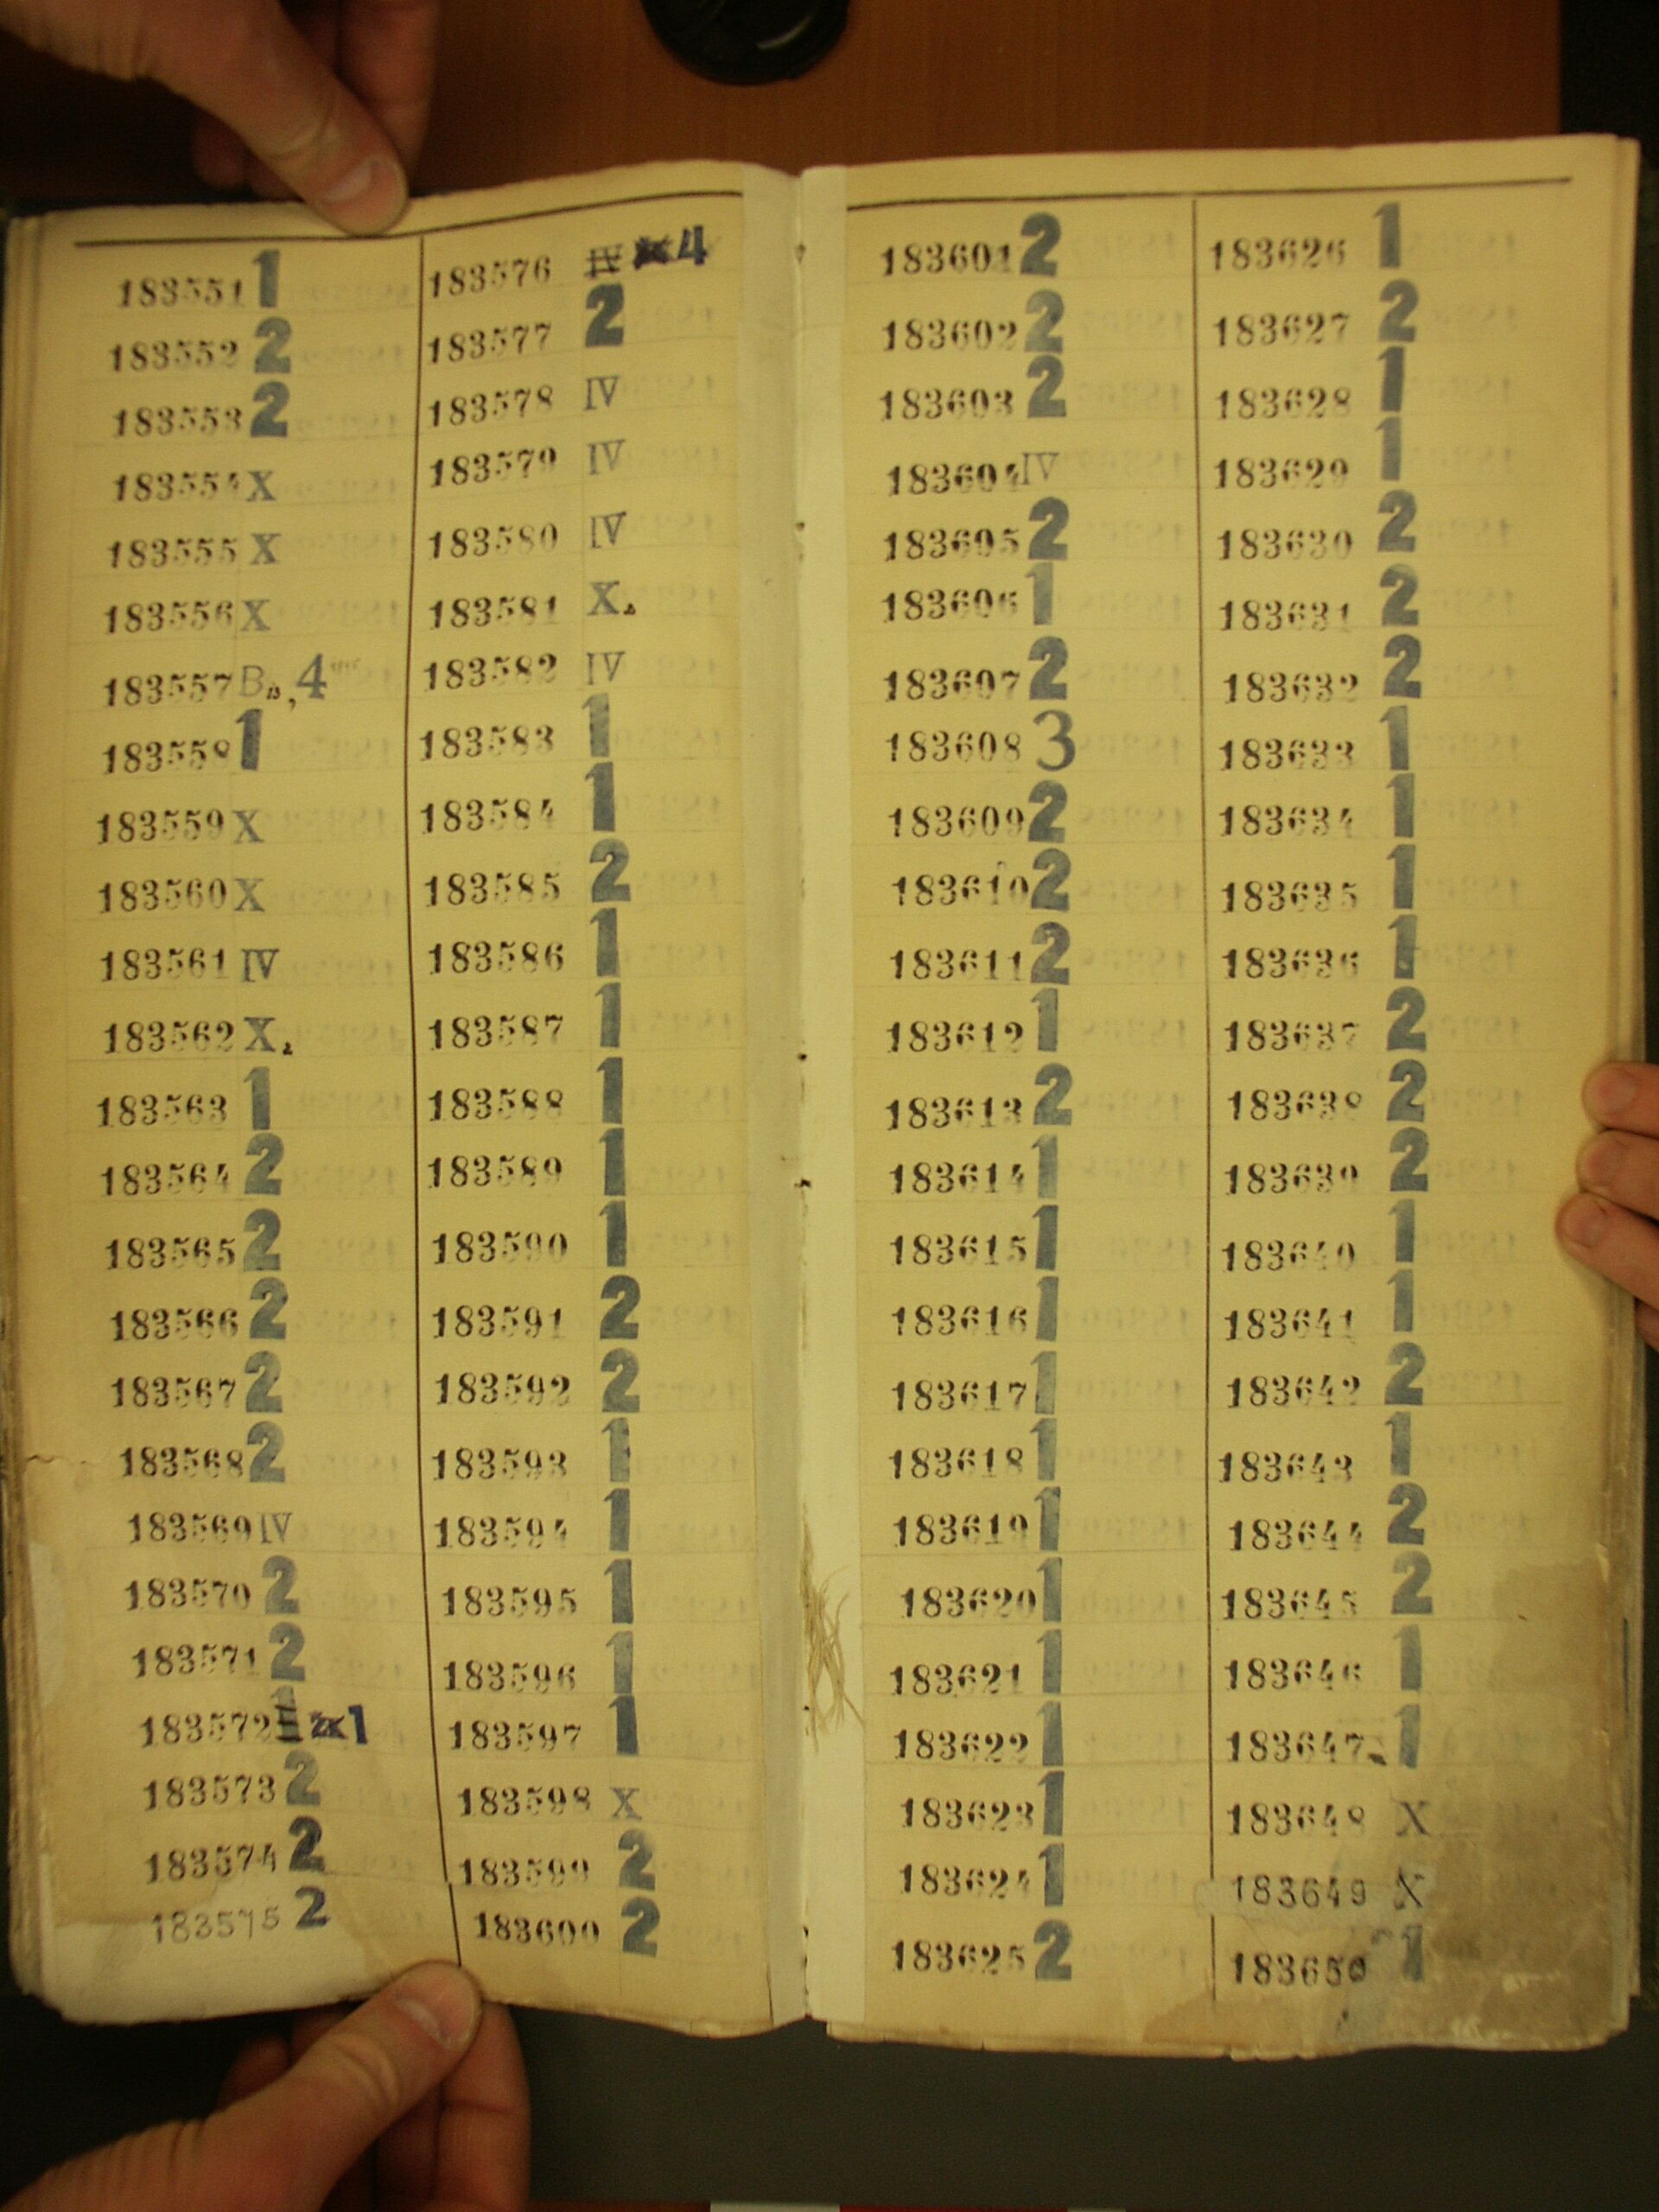 183551 1
183552 2
183553 2
183554 X
183555 X
183556 X
183557 B 13, 4
183558 1
183559 X
183560 X
183561 IV
183562 X 2
183563 1
183564 2
183565 2
183566 2
183567 2
183568 2
183569 IV
183570 2
183571 2
183572 1
183573 2
183574 2
183575 2
183576 IV 4
183577 2
183578 IV
183579 IV
183580 IV
183581 X
183582 IV
183583 1
183584 1
183585 2
183586 1
183587 1
183588 1
183589 1
183590 1
183591 2
183592 2
183593 1
183594 1
183595 1
183596 1
183597 1
183598 X
183599 2
183600 2
183601 2
183602 2
183603 2
183604 IV
183605 2
183606 1
183607 2
183608 3
183609 2
183610 2
183611 2
183612 1
183613 2
183614 1
183615 1
183616 1
183617 1
183618 1
183619 1
183620 1
183621 1
183622 1
183623 1
183624 1
183625 2
183626 1
183627 2
183628 1
183629 1
183630 2
183631 2
183632 2
183633 1
183634 1
183635 1
183636 1
183637 2
183638 2
183639 2
183640 1
183641 1
183642 2
183643 1
183644 2
183645 2
183646 1
183647 1
183648 X
183649 X
183650 1